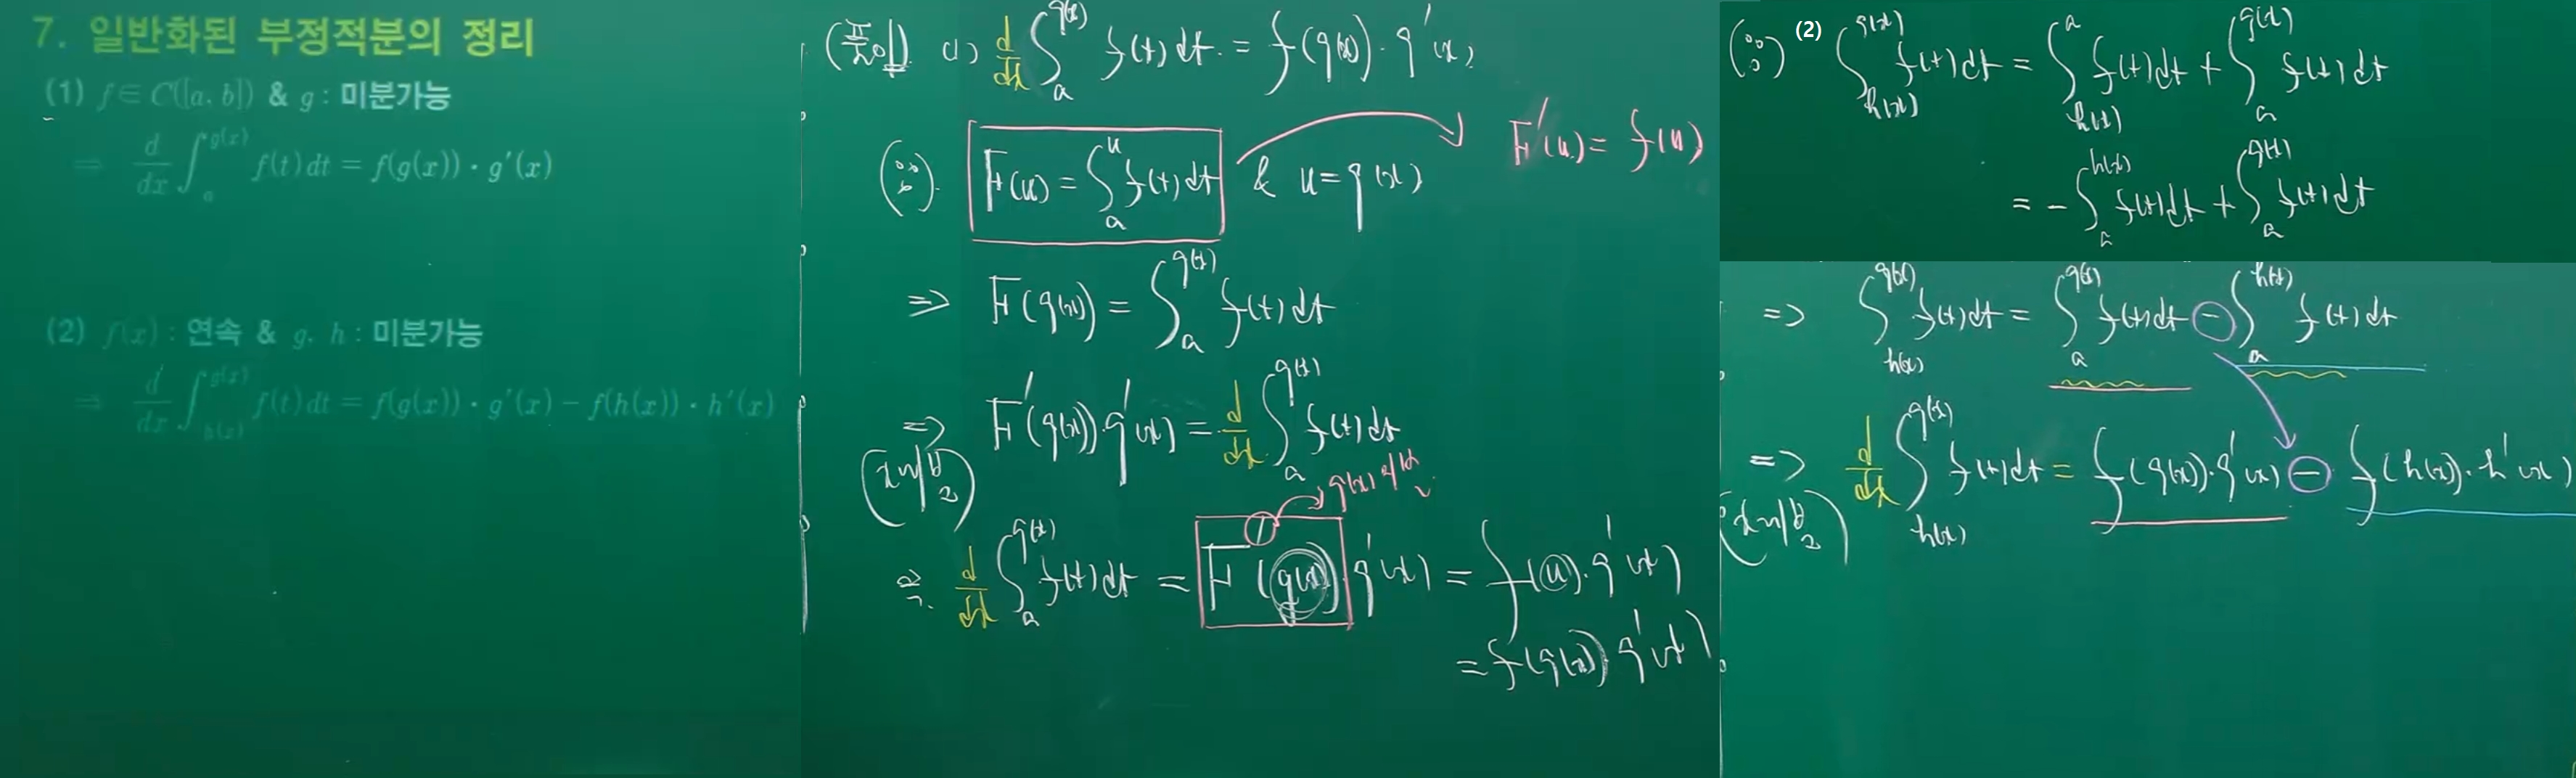 7. 일반화된 부정적분의 정리
(1) f ∈ C([a, b]) & g : 미분가능
⇒ d/dx ∫_a^{g(x)} f(t) dt = f(g(x)) · g′(x)
(2) f(x) : 연속 & g, h : 미분가능
⇒ d/dx ∫_{h(x)}^{g(x)} f(t) dt = f(g(x)) · g′(x) − f(h(x)) · h′(x)
(풀이) (1) d/dx ∫_a^{g(x)} f(t) dt = f(g(x)) · g′(x)
(∵) F(u) = ∫_a^u f(t) dt & u = g(x) F′(u) = f(u)
⇒ F(g(x)) = ∫_a^{g(x)} f(t) dt
⇒ F′(g(x)) · g′(x) = d/dx ∫_a^{g(x)} f(t) dt
g(x)
d/dx ∫_a^{g(x)} f(t) dt = F′(g(x)) · g′(x) = f(u) · g′(x)
= f(g(x)) g′(x)
(∵) (2) ∫_{h(x)}^{g(x)} f(t) dt = ∫_{h(x)}^a f(t) dt + ∫_a^{g(x)} f(t) dt
= − ∫_a^{h(x)} f(t) dt + ∫_a^{g(x)} f(t) dt
⇒ ∫_{h(x)}^{g(x)} f(t) dt = ∫_a^{g(x)} f(t) dt − ∫_a^{h(x)} f(t) dt
⇒ d/dx ∫_{h(x)}^{g(x)} f(t) dt = f(g(x)) · g′(x) − f(h(x)) · h′(x)